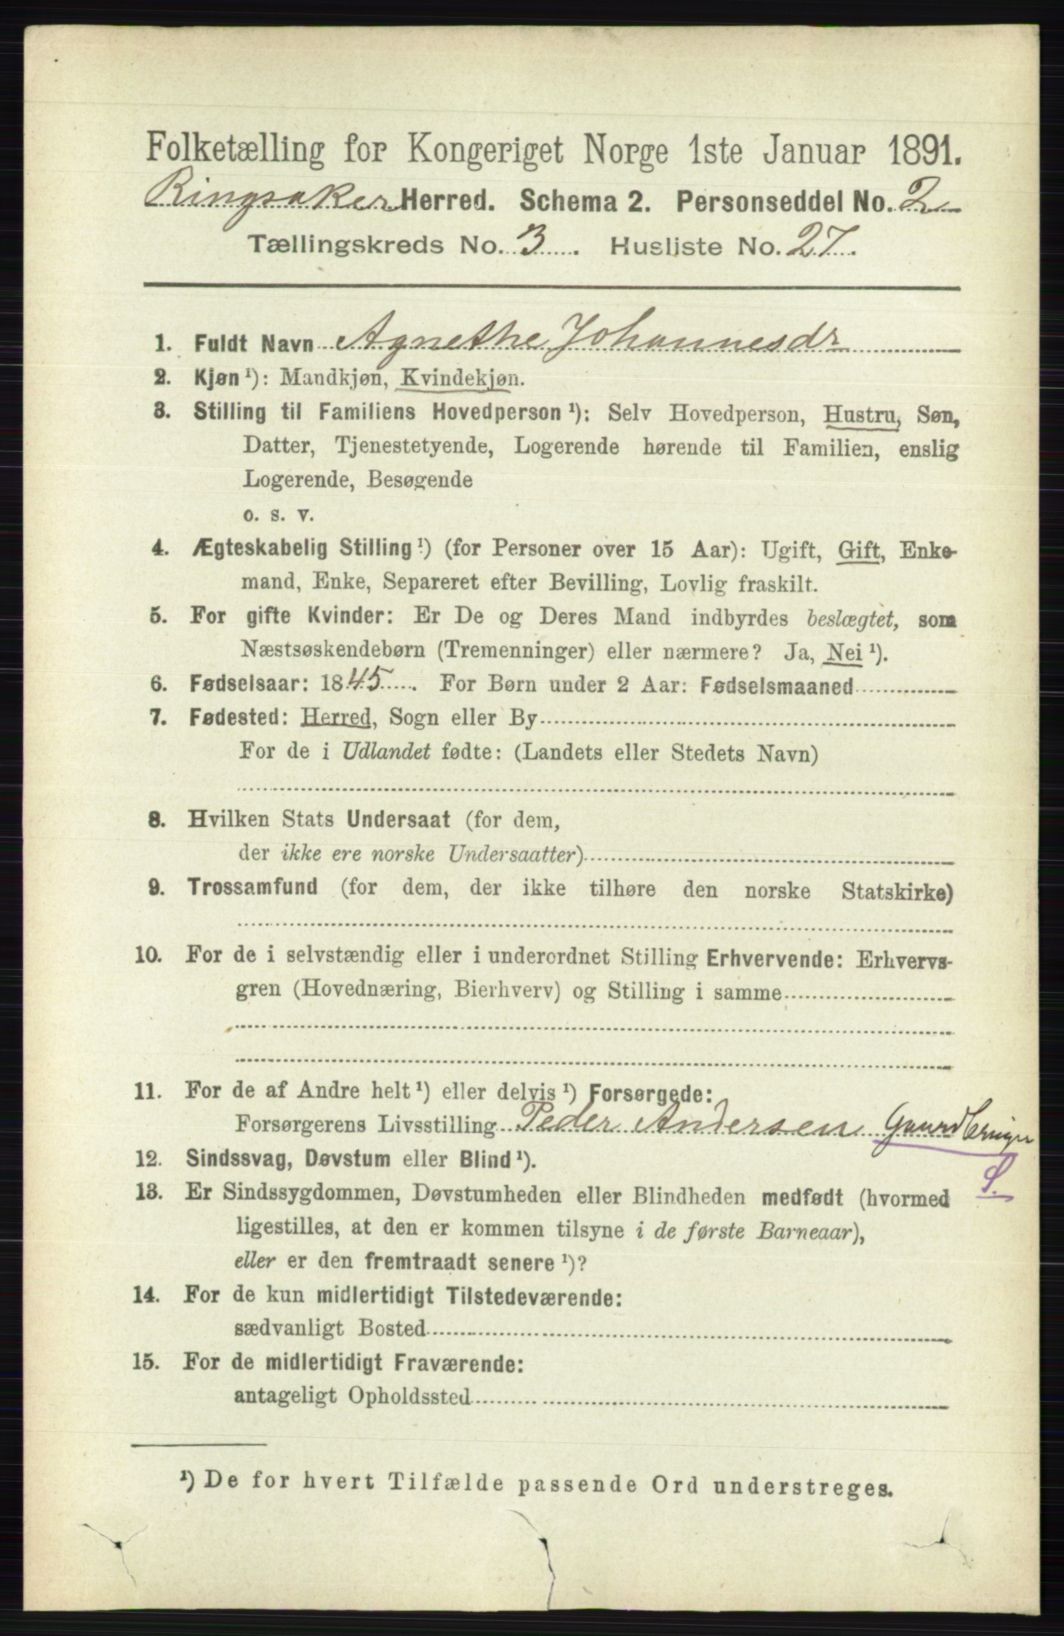 Folketælling for Kongeriget Norge 1ste Januar 1891.
Ringsaker Herred. Schema 2. Personseddel No. 2
Tællingskreds No. 3. Husliste No. 27.
1. Fuldt Navn Agnethe Johannesdr
2. Kjøn ¹): Mandkjøn, Kvindekjøn.
3. Stilling til Familiens Hovedperson ¹): Selv Hovedperson, Hustru, Søn,
Datter, Tjenestetyende, Logerende hørende til Familien, enslig
Logerende, Besøgende
o. s. v.
4. Ægteskabelig Stilling ¹) (for Personer over 15 Aar): Ugift, Gift, Enke-
mand, Enke, Separeret efter Bevilling, Lovlig fraskilt.
5. For gifte Kvinder: Er De og Deres Mand indbyrdes beslægtet, som
Næstsøskendebørn (Tremenninger) eller nærmere? Ja, Nei ¹).
6. Fødselsaar: 1845. For Børn under 2 Aar: Fødselsmaaned
7. Fødested: Herred, Sogn eller By
For de i Udlandet fødte: (Landets eller Stedets Navn)
8. Hvilken Stats Undersaat (for dem,
der ikke ere norske Undersaatter)
9. Trossamfund (for dem, der ikke tilhøre den norske Statskirke)
10. For de i selvstændig eller i underordnet Stilling Erhvervende: Erhvervs-
gren (Hovednæring, Bierhverv) og Stilling i samme
11. For de af Andre helt ¹) eller delvis ¹) Forsørgede:
Forsørgerens Livsstilling Peder Andersen Gaardbruger
12. Sindssvag, Døvstum eller Blind ¹).
S.
13. Er Sindssygdommen, Døvstumheden eller Blindheden medfødt (hvormed
ligestilles, at den er kommen tilsyne i de første Barneaar),
eller er den fremtraadt senere ¹)?
14. For de kun midlertidigt Tilstedeværende:
sædvanligt Bosted
15. For de midlertidigt Fraværende:
antageligt Opholdssted
¹) De for hvert Tilfælde passende Ord understreges.